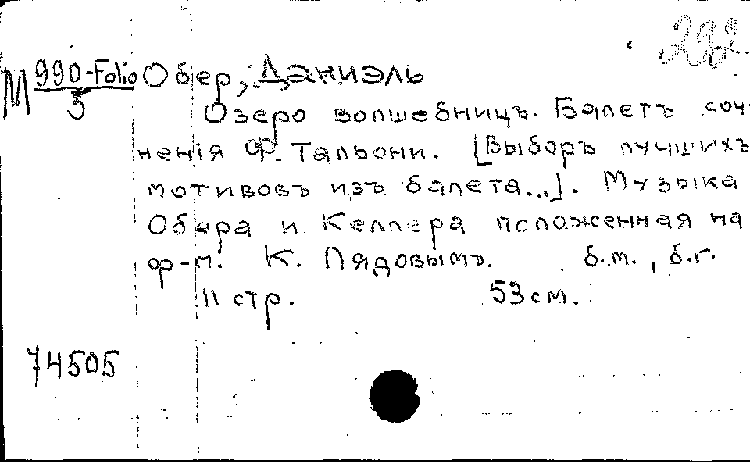 М 990-Folio/5 Обер, Даниэль
Озеро волшебницъ. Балетъ сочи-
ненія Ф. Тальони. [Выборъ лучшихъ
мотивовъ изъ балета...]. Музыка
Обера и Келлера положенная на
ф-п. К. Лядовымъ. б.м., б.г.
11 стр. 53 см.
74505